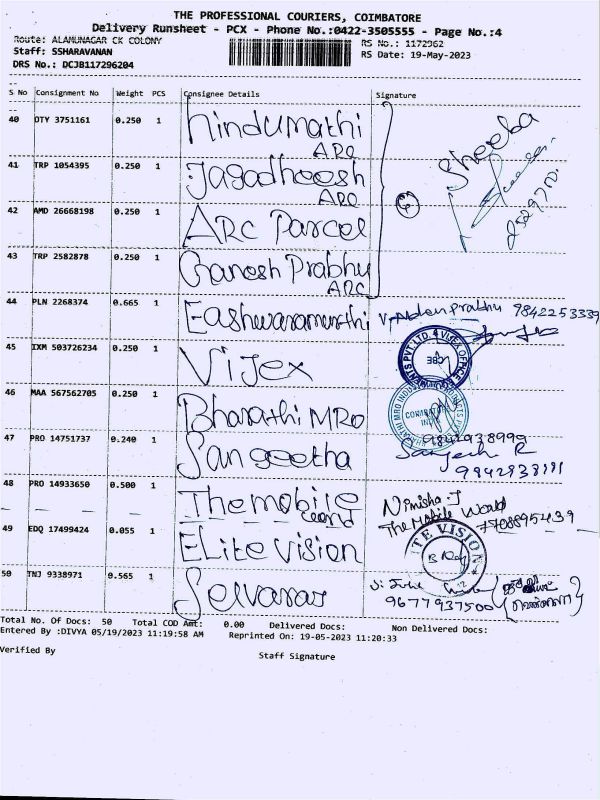 THE PROFESSIONAL COURIERS, COIMBATORE
Delivery Runsheet - PCX - Phone No.:0422-3505555 - Page No.:4
Route: ALAMUNAGAR CK COLONY
RS No.: 1172962
Staff: SSHARAVANAN
RS Date: 19-May-2023
DRS No.: DCJB117296204
S No Consignment No Weight PCS Consignee Details Signature
40 OTY 3751161 0.250 1 hindumathi
ARC
Sheeba
41 TRP 1054395 0.250 1 Jagadheesh
ARC
4
42 AMD 26668198 0.250 1 ARC Parcel
43 TRP 2582878 0.250 1 Ganesh Prabhu
ARC
44 PLN 2268374 0.665 1 Eashwaramurthi prabhu 9842253339
45 IXM 503726234 0.250 1 Vijex
46 MAA 567562705 0.250 1 Bharathi MRO
47 PRO 14751737 0.240 1 Sangeetha 9842938999
Sanjesh R
9842838181
48 PRO 14933650 0.500 1 The mobile Nimisha.J
The Mobile World
7708895439
49 EDQ 17499424 0.055 1 ELite vision
50 TNJ 9338971 0.565 1 Selvaraj
9677937500
Total No. Of Docs: 50 Total COD Amt: 0.00 Delivered Docs: Non Delivered Docs:
Entered By :DIVYA 05/19/2023 11:19:58 AM Reprinted On: 19-05-2023 11:20:33
Verified By Staff Signature